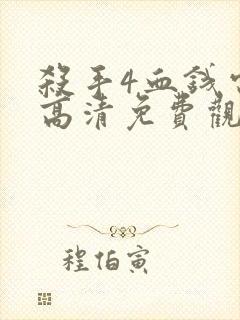 殺手4血錢
高清免費觀
程伯寅